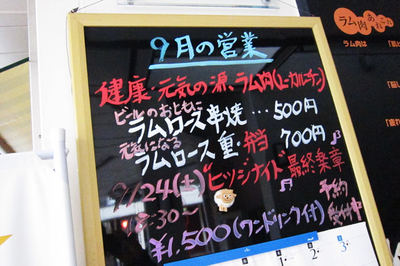 9月の営業
健康・元気の源、ラム肉(L-カルニチン)
ビールのおともに
ラムロース串焼…500円
元気になる
ラムロース重・弁当 700円
9/24(土)ヒツジナイト最終楽章
18:30～
予約
受付中
¥1,500(ワンドリンク付)
1
2
3
ラム肉
ラム肉は